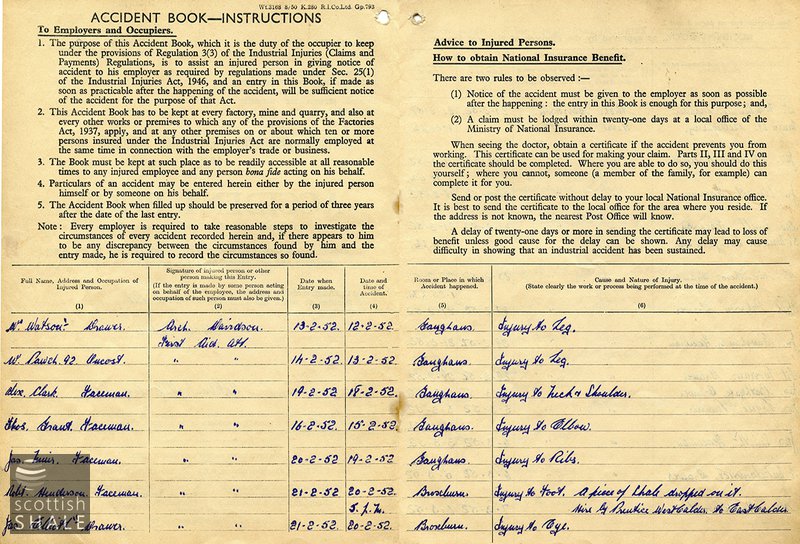 Wt.3168 8/50 K.280 R.I.Co.Ltd. Gp.793
ACCIDENT BOOK—INSTRUCTIONS
To Employers and Occupiers.
1. The purpose of this Accident Book, which it is the duty of the occupier to keep
under the provisions of Regulation 3(3) of the Industrial Injuries (Claims and
Payments) Regulations, is to assist an injured person in giving notice of
accident to his employer as required by regulations made under Sec. 25(1)
of the Industrial Injuries Act, 1946, and an entry in this Book, if made as
soon as practicable after the happening of the accident, will be sufficient
notice of the accident for the purpose of that Act.
2. This Accident Book has to be kept at every factory, mine and quarry, and also at
every other works or premises to which any of the provisions of the Factories
Act, 1937, apply, and at any other premises on or about which ten or more
persons insured under the Industrial Injuries Act are normally employed at
the same time in connection with the employer's trade or business.
3. The Book must be kept at such place as to be readily accessible at all reasonable
times to any injured employee and any person bona fide acting on his behalf.
4. Particulars of an accident may be entered herein either by the injured person
himself or by someone on his behalf.
5. The Accident Book when filled up should be preserved for a period of three years
after the date of the last entry.
Note: Every employer is required to take reasonable steps to investigate the
circumstances of every accident recorded herein and, if there appears to him
to be any discrepancy between the circumstances found by him and the
entry made, he is required to record the circumstances so found.
Advice to Injured Persons.
How to obtain National Insurance Benefit.
There are two rules to be observed:—
(1) Notice of the accident must be given to the employer as soon as possible
after the happening: the entry in this Book is enough for this purpose; and,
(2) A claim must be lodged within twenty-one days at a local office of the
Ministry of National Insurance.
When seeing the doctor, obtain a certificate if the accident prevents you from
working. This certificate can be used for making your claim. Parts II, III and IV on
the certificate should be completed. Where you are able to do so, you should do this
yourself; where you cannot, someone (a member of the family, for example) can
complete it for you.
Send or post the certificate without delay to your local National Insurance office.
It is best to send the certificate to the local office for the area where you reside. If
the address is not known, the nearest Post Office will know.
A delay of twenty-one days or more in sending the certificate may lead to loss of
benefit unless good cause for the delay can be shown. Any delay may cause
difficulty in showing that an industrial accident has been sustained.
Full Name, Address and Occupation of
Injured Person.
(1)
Signature of injured person or other
person making this Entry.
(If the entry is made by some person acting
on behalf of the employee, the address and
occupation of such person must also be given.)
(2)
Date when
Entry made.
(3)
Date and
time of
Accident.
(4)
Room or Place in which
Accident happened.
(5)
Cause and Nature of Injury.
(State clearly the work or process being performed at the time of the accident.)
(6)
Wm Watson Drawer Arch. Davidson. 13-2-52. 12-2-52. Baughans. Injury to Leg.
First Aid Att.
W. 92 Oncost. " " 14-2-52. 13-2-52. Baughans. Injury to Leg.
Alex. Clark. Faceman. " " 19-2-52 18-2-52. Baughans. Injury to Neck & Shoulder.
Thos. Grant. Faceman. " " 16-2-52 15-2-52. Baughans. Injury to Elbow.
Jas. Faceman. " " 20-2-52 19-2-52. Baughans. Injury to Ribs.
Robt. Henderson. Faceman. " " 21-2-52 20-2-52. Broxburn. Injury to Foot. A piece of Shale dropped on it.
Hire by Prentice West Calder to East Calder
Jas Drawer. 21-2-52. 20-2-52. Broxburn. Injury to Eye.
scottish
SHALE